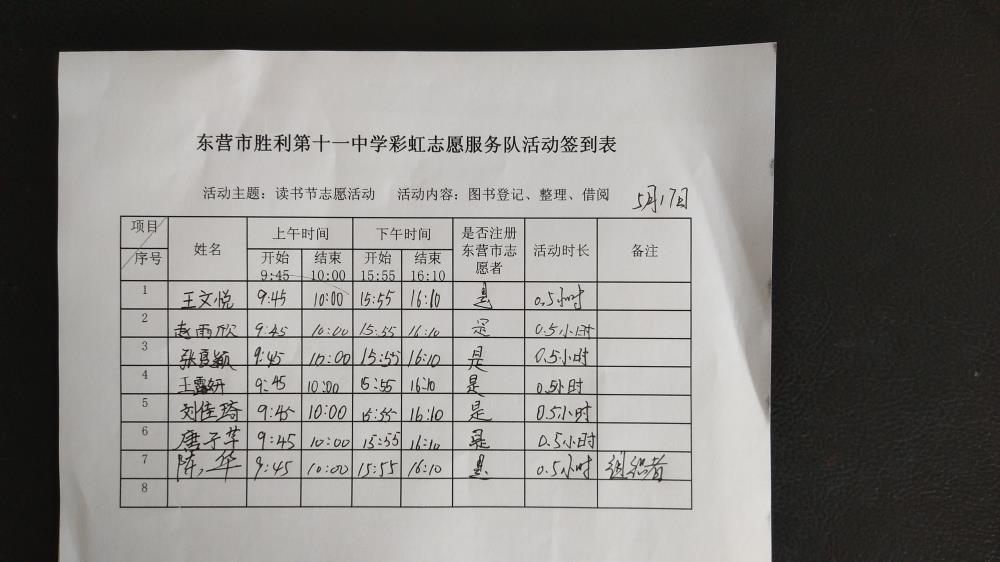 东营市胜利第十一中学彩虹志愿服务队活动签到表
活动主题：读书节志愿活动 活动内容：图书登记、整理、借阅 5月17日
项目 序号 姓名 上午时间 下午时间 是否注册东营市志愿者 活动时长 备注
开始 9:45 结束 10:00 开始 15:55 结束 16:10
1 王文悦 9:45 10:00 15:55 16:10 是 0.5小时
2 赵雨欣 9:45 10:00 15:55 16:10 是 0.5小时
3 张 颖 9:45 10:00 15:55 16:10 是 0.5小时
4 王露妍 9:45 10:00 15:55 16:10 是 0.5小时
5 刘佳琦 9:45 10:00 15:55 16:10 是 0.5小时
6 唐子 9:45 10:00 15:55 16:10 是 0.5小时
7 陈 华 9:45 10:00 15:55 16:10 是 0.5小时 组织者
8